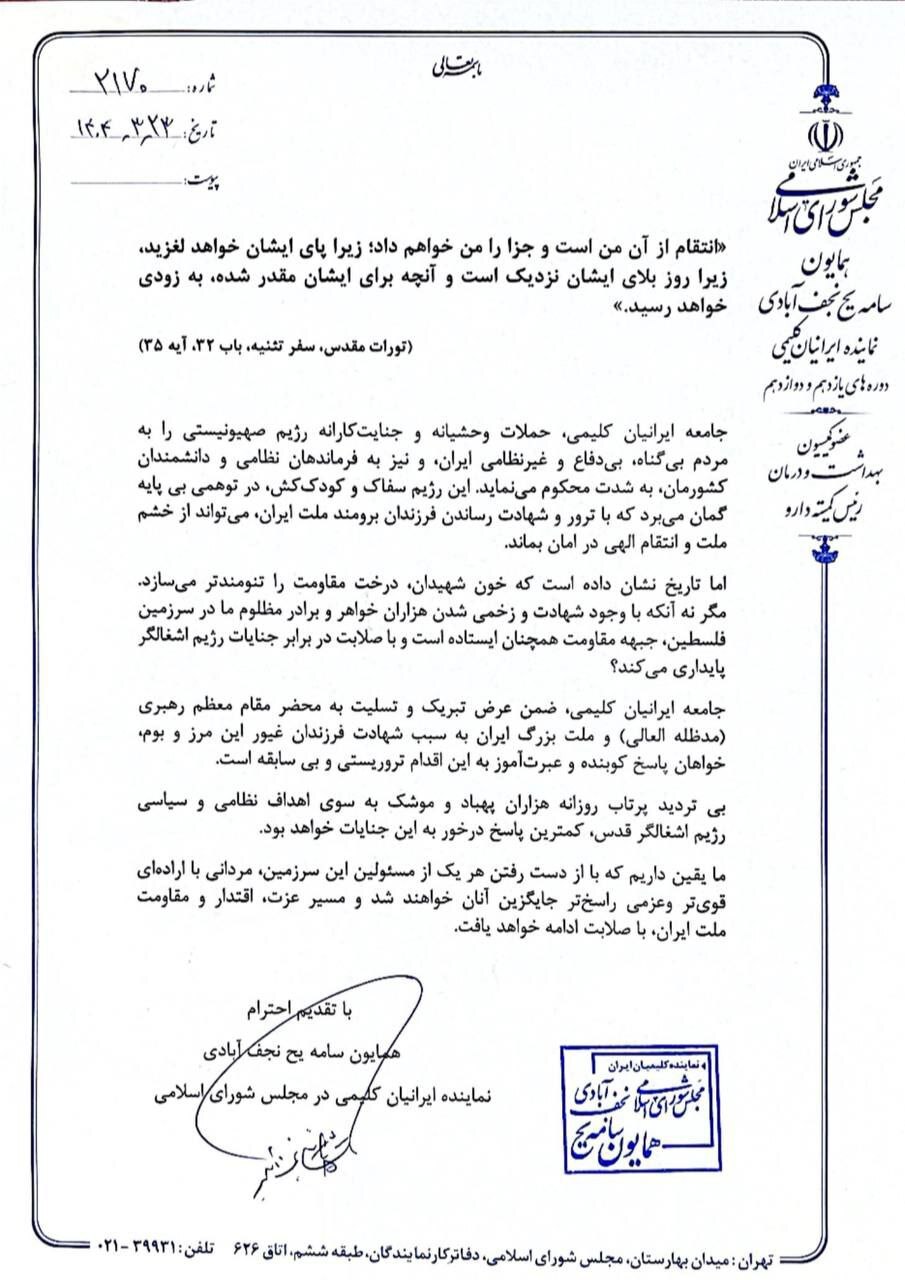 باسمه تعالی
شماره: ۲۱۷۰
تاریخ: ۱۴۰۴٫۳٫۲۳
پیوست:
جمهوری اسلامی ایران
مجلس شورای اسلامی
همایون
سامه یح نجف آبادی
نماینده ایرانیان کلیمی
دوره های یازدهم و دوازدهم
عضو کمیسیون
بهداشت و درمان
رئیس کمیته دارو
«انتقام از آن من است و جزا را من خواهم داد؛ زیرا پای ایشان خواهد لغزید،
زیرا روز بلای ایشان نزدیک است و آنچه برای ایشان مقدر شده، به زودی
خواهد رسید.»
(تورات مقدس، سفر تثنیه، باب ۳۲، آیه ۳۵)
جامعه ایرانیان کلیمی، حملات وحشیانه و جنایت‌کارانه رژیم صهیونیستی را به
مردم بی‌گناه، بی‌دفاع و غیرنظامی ایران، و نیز به فرماندهان نظامی و دانشمندان
کشورمان، به شدت محکوم می‌نماید. این رژیم سفاک و کودک‌کش، در توهمی بی پایه
گمان می‌برد که با ترور و شهادت رساندن فرزندان برومند ملت ایران، می‌تواند از خشم
ملت و انتقام الهی در امان بماند.
اما تاریخ نشان داده است که خون شهیدان، درخت مقاومت را تنومندتر می‌سازد.
مگر نه آنکه با وجود شهادت و زخمی شدن هزاران خواهر و برادر مظلوم ما در سرزمین
فلسطین، جبهه مقاومت همچنان ایستاده است و با صلابت در برابر جنایات رژیم اشغالگر
پایداری می‌کند؟
جامعه ایرانیان کلیمی، ضمن عرض تبریک و تسلیت به محضر مقام معظم رهبری
(مدظله العالی) و ملت بزرگ ایران به سبب شهادت فرزندان غیور این مرز و بوم،
خواهان پاسخ کوبنده و عبرت‌آموز به این اقدام تروریستی و بی سابقه است.
بی تردید پرتاب روزانه هزاران پهباد و موشک به سوی اهداف نظامی و سیاسی
رژیم اشغالگر قدس، کمترین پاسخ درخور به این جنایات خواهد بود.
ما یقین داریم که با از دست رفتن هر یک از مسئولین این سرزمین، مردانی با اراده‌ای
قوی‌تر وعزمی راسخ‌تر جایگزین آنان خواهند شد و مسیر عزت، اقتدار و مقاومت
ملت ایران، با صلابت ادامه خواهد یافت.
با تقدیم احترام
همایون سامه یح نجف آبادی
نماینده ایرانیان کلیمی در مجلس شورای اسلامی
نماینده کلیمیان ایران
مجلس شورای اسلامی
نجف آبادی
همایون سامه یح
تهران: میدان بهارستان، مجلس شورای اسلامی، دفاتر کار نمایندگان، طبقه ششم، اتاق ۶۲۶ تلفن: ۳۹۹۳۱-۰۲۱